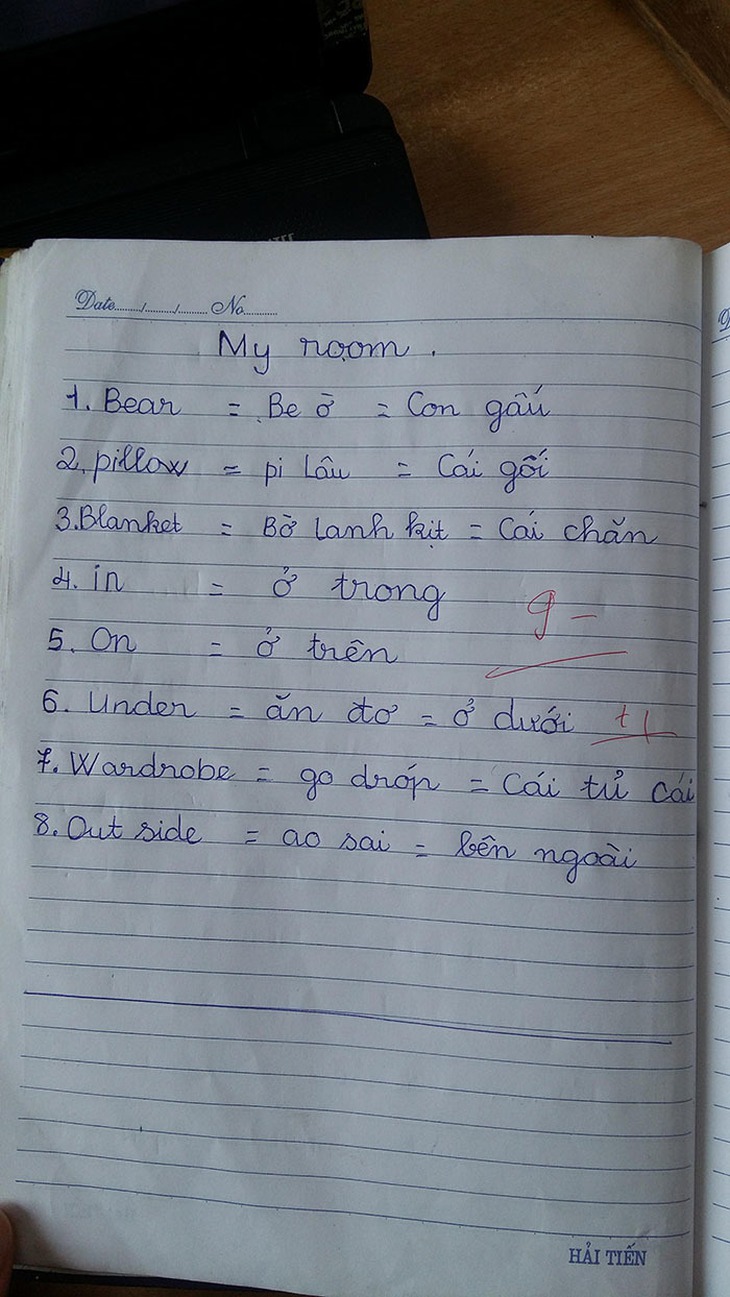 Date......../........../......... No..........
My room.
1. Bear = Be ở = Con gấu
2. pillow = pi Lâu = Cái gối
3. Blanket = Bờ Lanh kịt = Cái chăn
4. in = ở trong
9 -
5. On = ở trên
6. Under = ăn đơ = ở dưới +1
7. Wardrobe = go dróp = Cái tủ cái
8. Out side = ao sai = bên ngoài
HẢI TIẾN